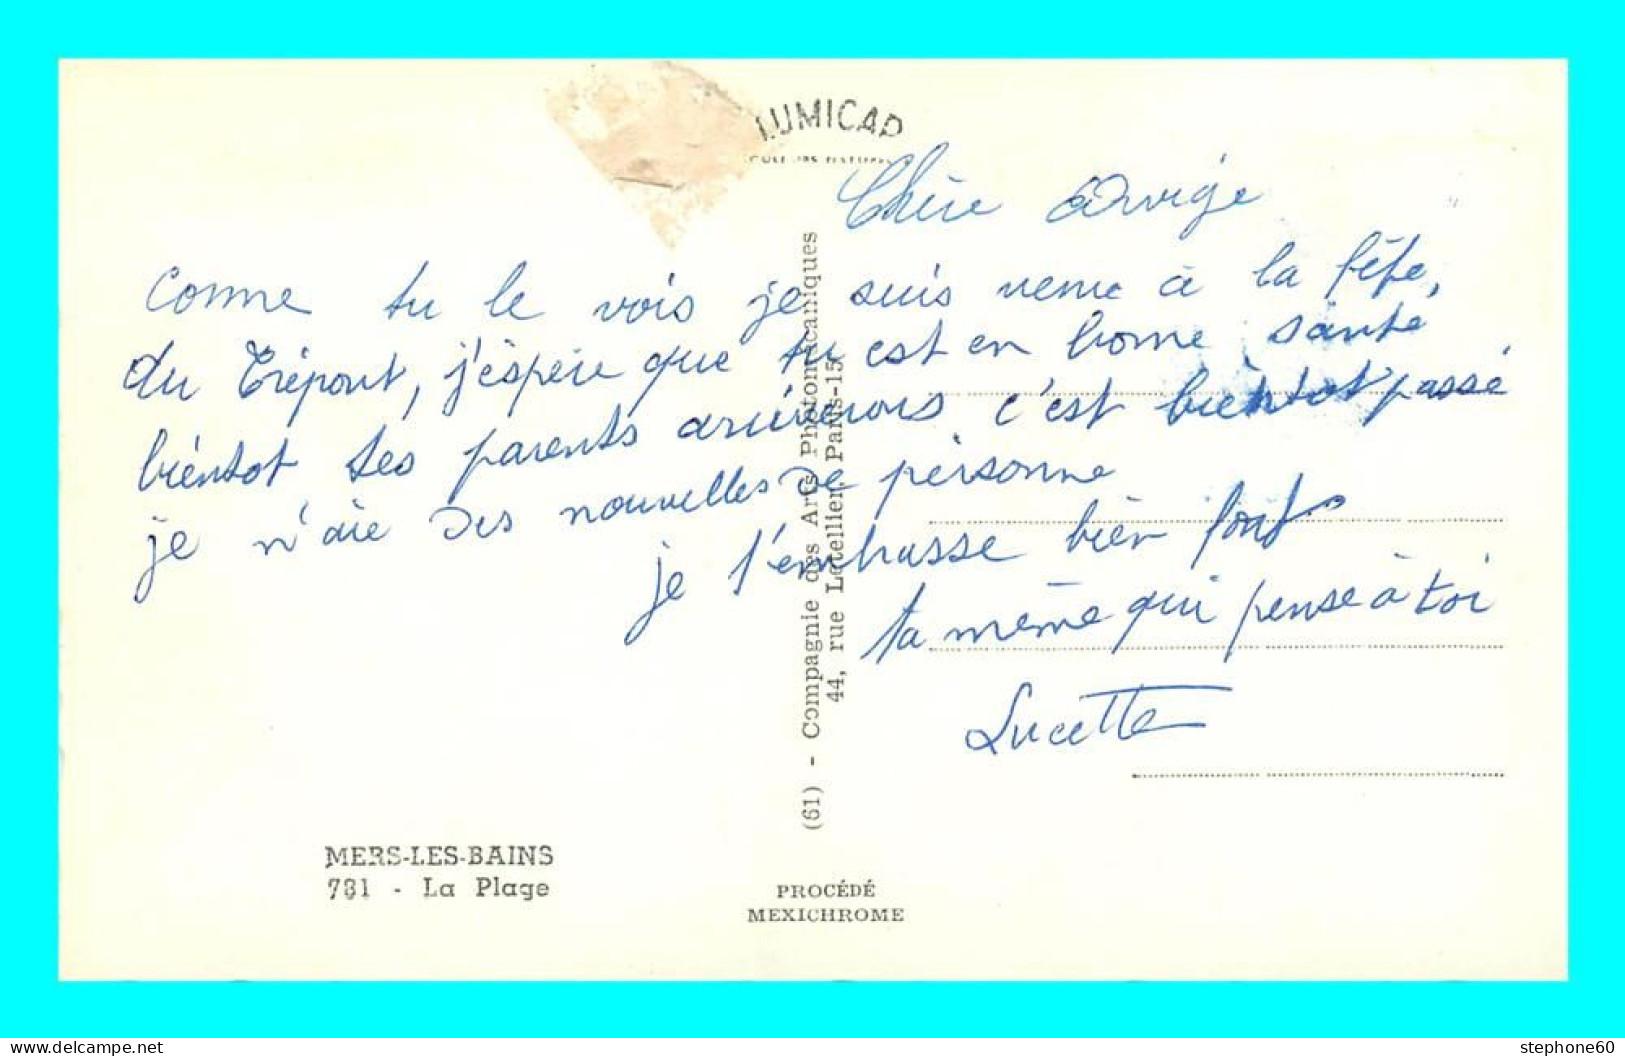 LUMICAP
COULEURS NATUREL
Chère
Comme tu le vois je suis venue à la fête,
du Tréport, j'éspére que tu est en bonne santé
biéntot tes parents c'est bientot passé
je n'aie des nouvelles de personne
je t'embrasse bien fort
ta même qui pense à toi
Lucette
(61) - Compagnie des Arts Photomécaniques
44, rue Letellier, Paris-15
MERS-LES-BAINS
781 - La Plage
PROCÉDÉ
MEXICHROME
www.delcampe.net
stephone60